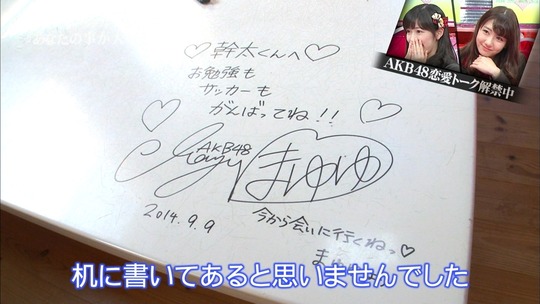 ♡幹太くんへ♡
お勉強も
サッカーも
がんばってね!!
AKB48
まゆゆ
2014.9.9
今から会いに行くねっ♡
AKB48恋愛トーク解禁中
机に書いてあると思いませんでした